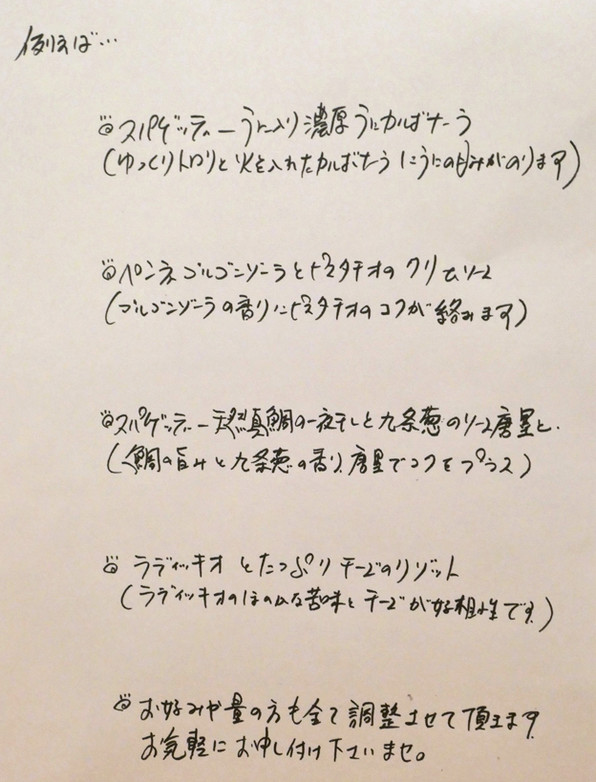 例えば…
スパゲッティーうに入り濃厚うにカルボナーラ
(ゆっくりトロリと火を入れたカルボナーラにうにの旨みがのります)
ペンネゴルゴンゾーラとピスタチオのクリームソース
(ゴルゴンゾーラの香りにピスタチオのコクが絡みます)
スパゲッティー天然真鯛の一夜干しと九条葱のソース唐墨と.
(鯛の旨みと九条葱の香り.唐墨でコクをプラス)
ラディッキオとたっぷりチーズのリゾット
(ラディッキオのほのかな苦味とチーズが好相性です)
お好みや量の方も全て調整させて頂きます
お気軽にお申し付け下さいませ。